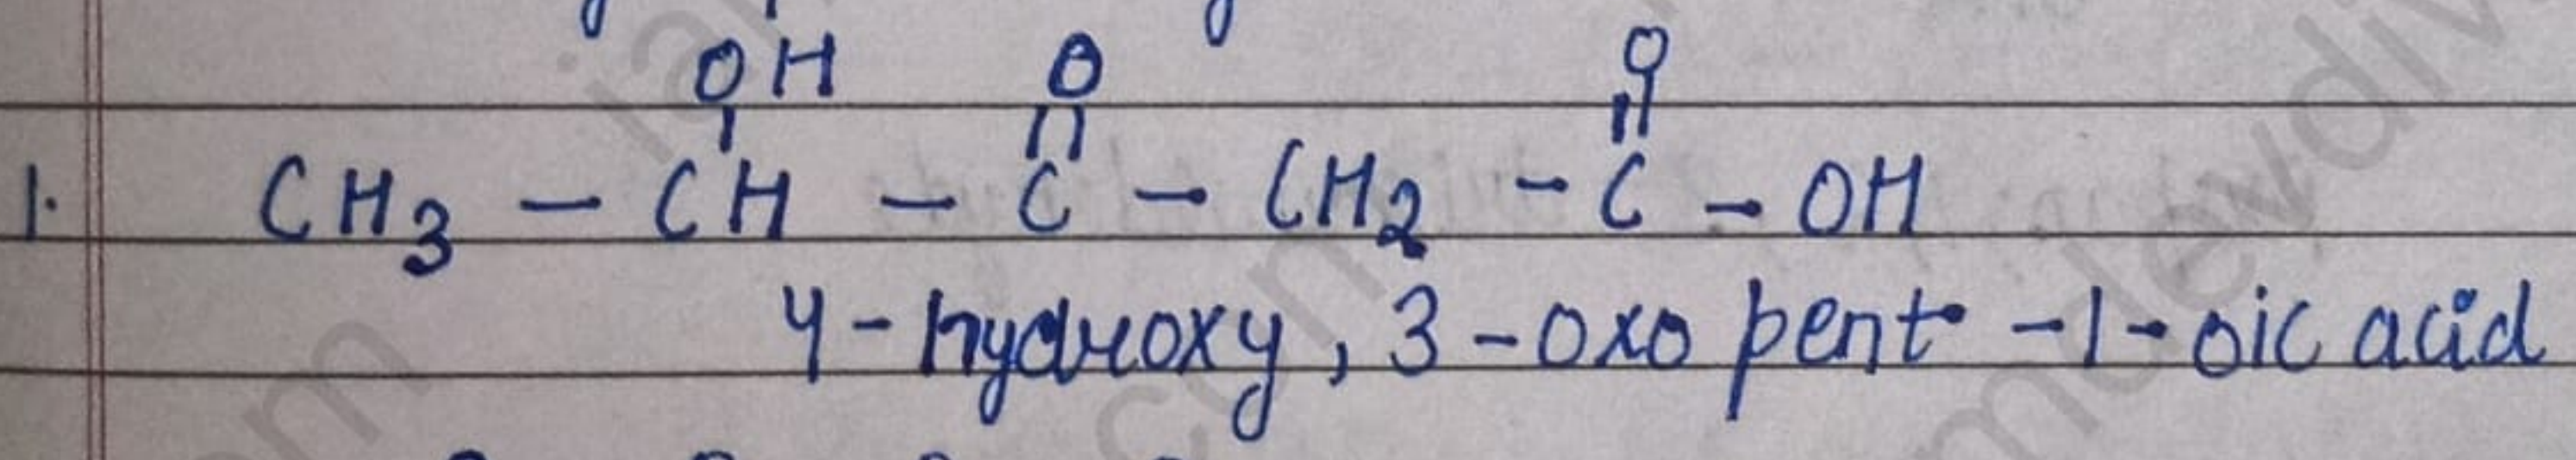 OH O O
1. CH3 - CH - C - CH2 - C - OH
4-hydroxy, 3-oxo pent-1-oic acid